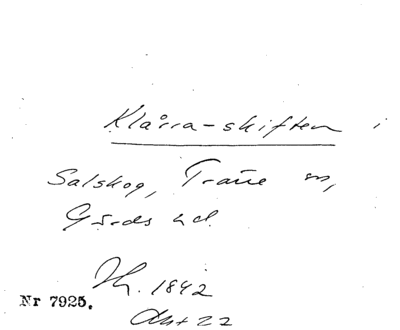 Klårra-skiften i
Salskog, Träne sn,
Gärds hd.
1842
Nr 7925.
Akt 22